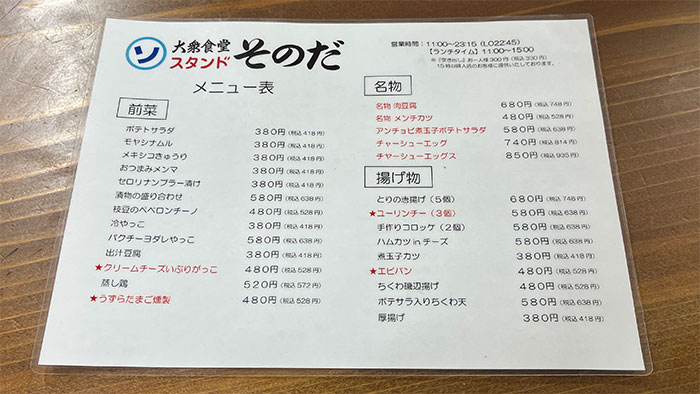 ソ 大衆食堂
スタンド そのだ
営業時間：11:00～23:15（LO22:45）
【ランチタイム】11:00～15:00
※『突き出し』お一人様300円（税込330円）
15時以降入店のお客様に提供いたしております。
メニュー表
前菜
ポテトサラダ 380円（税込418円）
モヤシナムル 380円（税込418円）
メキシコきゅうり 380円（税込418円）
おつまみメンマ 380円（税込418円）
セロリナンプラー漬け 380円（税込418円）
漬物の盛り合わせ 580円（税込638円）
枝豆のペペロンチーノ 480円（税込528円）
冷やっこ 380円（税込418円）
パクチーヨダレやっこ 580円（税込638円）
出汁豆腐 380円（税込418円）
★クリームチーズいぶりがっこ 480円（税込528円）
蒸し鶏 520円（税込572円）
★うずらたまご燻製 480円（税込528円）
名物
名物 肉豆腐 680円（税込748円）
名物 メンチカツ 480円（税込528円）
アンチョビ煮玉子ポテトサラダ 580円（税込638円）
チャーシューエッグ 740円（税込814円）
チャーシューエッグス 850円（税込935円）
揚げ物
とりの唐揚げ（5個） 680円（税込748円）
★ユーリンチー（3個） 580円（税込638円）
手作りコロッケ（2個） 580円（税込638円）
ハムカツinチーズ 580円（税込638円）
煮玉子カツ 380円（税込418円）
★エビパン 480円（税込528円）
ちくわ磯辺揚げ 480円（税込528円）
ポテサラ入りちくわ天 580円（税込638円）
厚揚げ 380円（税込418円）